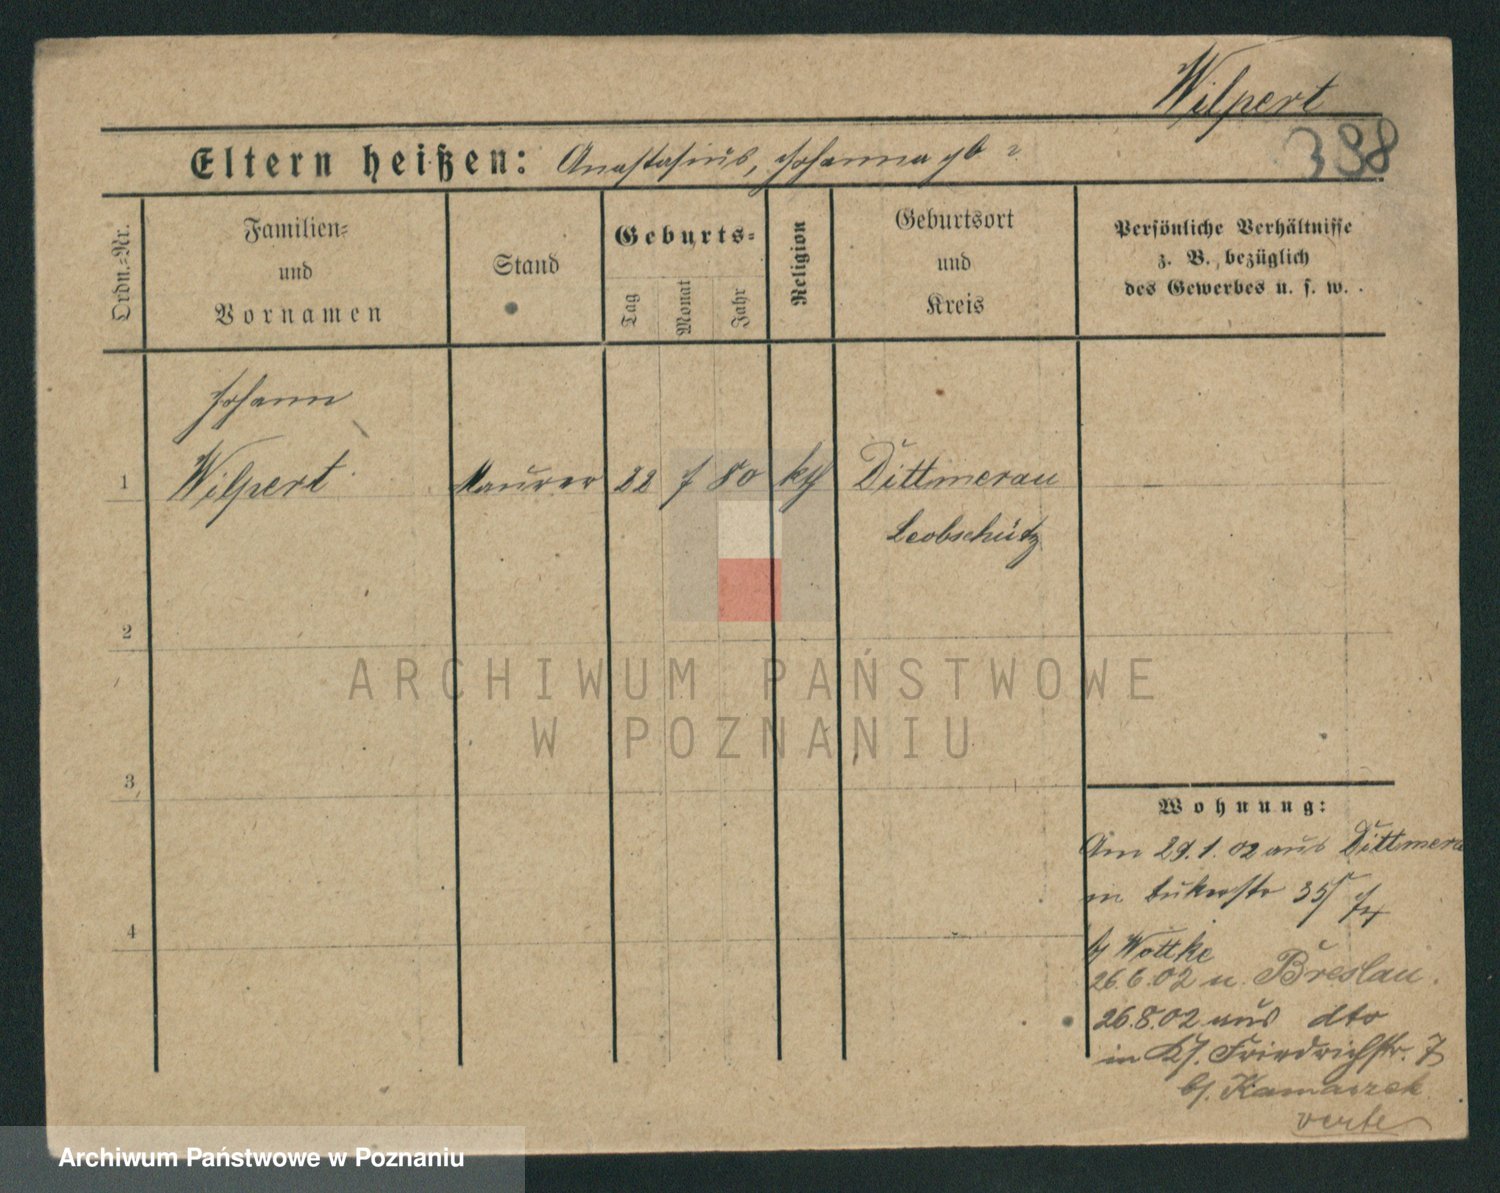 Wilpert
338
Eltern heißen: Anastasius, Johanna gb ?
Ordn.-Nr.
Familien-
und
Vornamen
Stand
Geburts-
Tag
Monat
Jahr
Religion
Geburtsort
und
Kreis
Persönliche Verhältnisse
z. B. bezüglich
des Gewerbes u. s. w.
Johann
1 Wilpert Maurer 22 7 80 kth Dittmerau
Leobschütz
2
3
4
Wohnung:
Am 29.1.02 aus Dittmerau
in 35
bj Wottke
26.6.02 n. Breslau.
26.8.02 aus dto
in Kl. Friedrichstr. 7
bj. Kamaszek
verte
ARCHIWUM PAŃSTWOWE
W POZNANIU
Archiwum Państwowe w Poznaniu